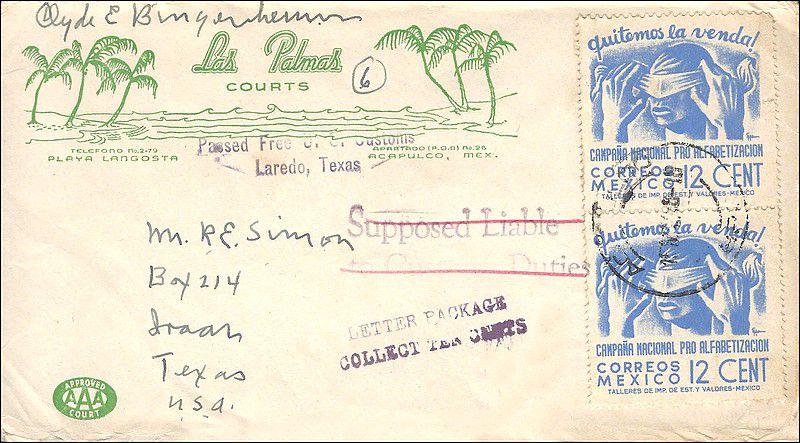 Clyde E
Las Palmas
COURTS
6
TELEFONO No. 2-79
PLAYA LANGOSTA
APARTADO (P.O.B) No. 26
ACAPULCO, MEX.
Passed Free U. S. Customs
Laredo, Texas
quitemos la venda!
CAMPAÑA NACIONAL PRO ALFABETIZACION
CORREOS 12 CENT
MEXICO
TALLERES DE IMP. DE EST. Y VALORES-MEXICO
Supposed Liable
to Duties
quitemos la venda!
CAMPAÑA NACIONAL PRO ALFABETIZACION
CORREOS 12 CENT
MEXICO
TALLERES DE IMP. DE EST. Y VALORES-MEXICO
Mr. R.E. Simon
Box 214
Iraan
Texas
U.S.A.
LETTER PACKAGE
COLLECT TEN CENTS
APPROVED
AAA
COURT